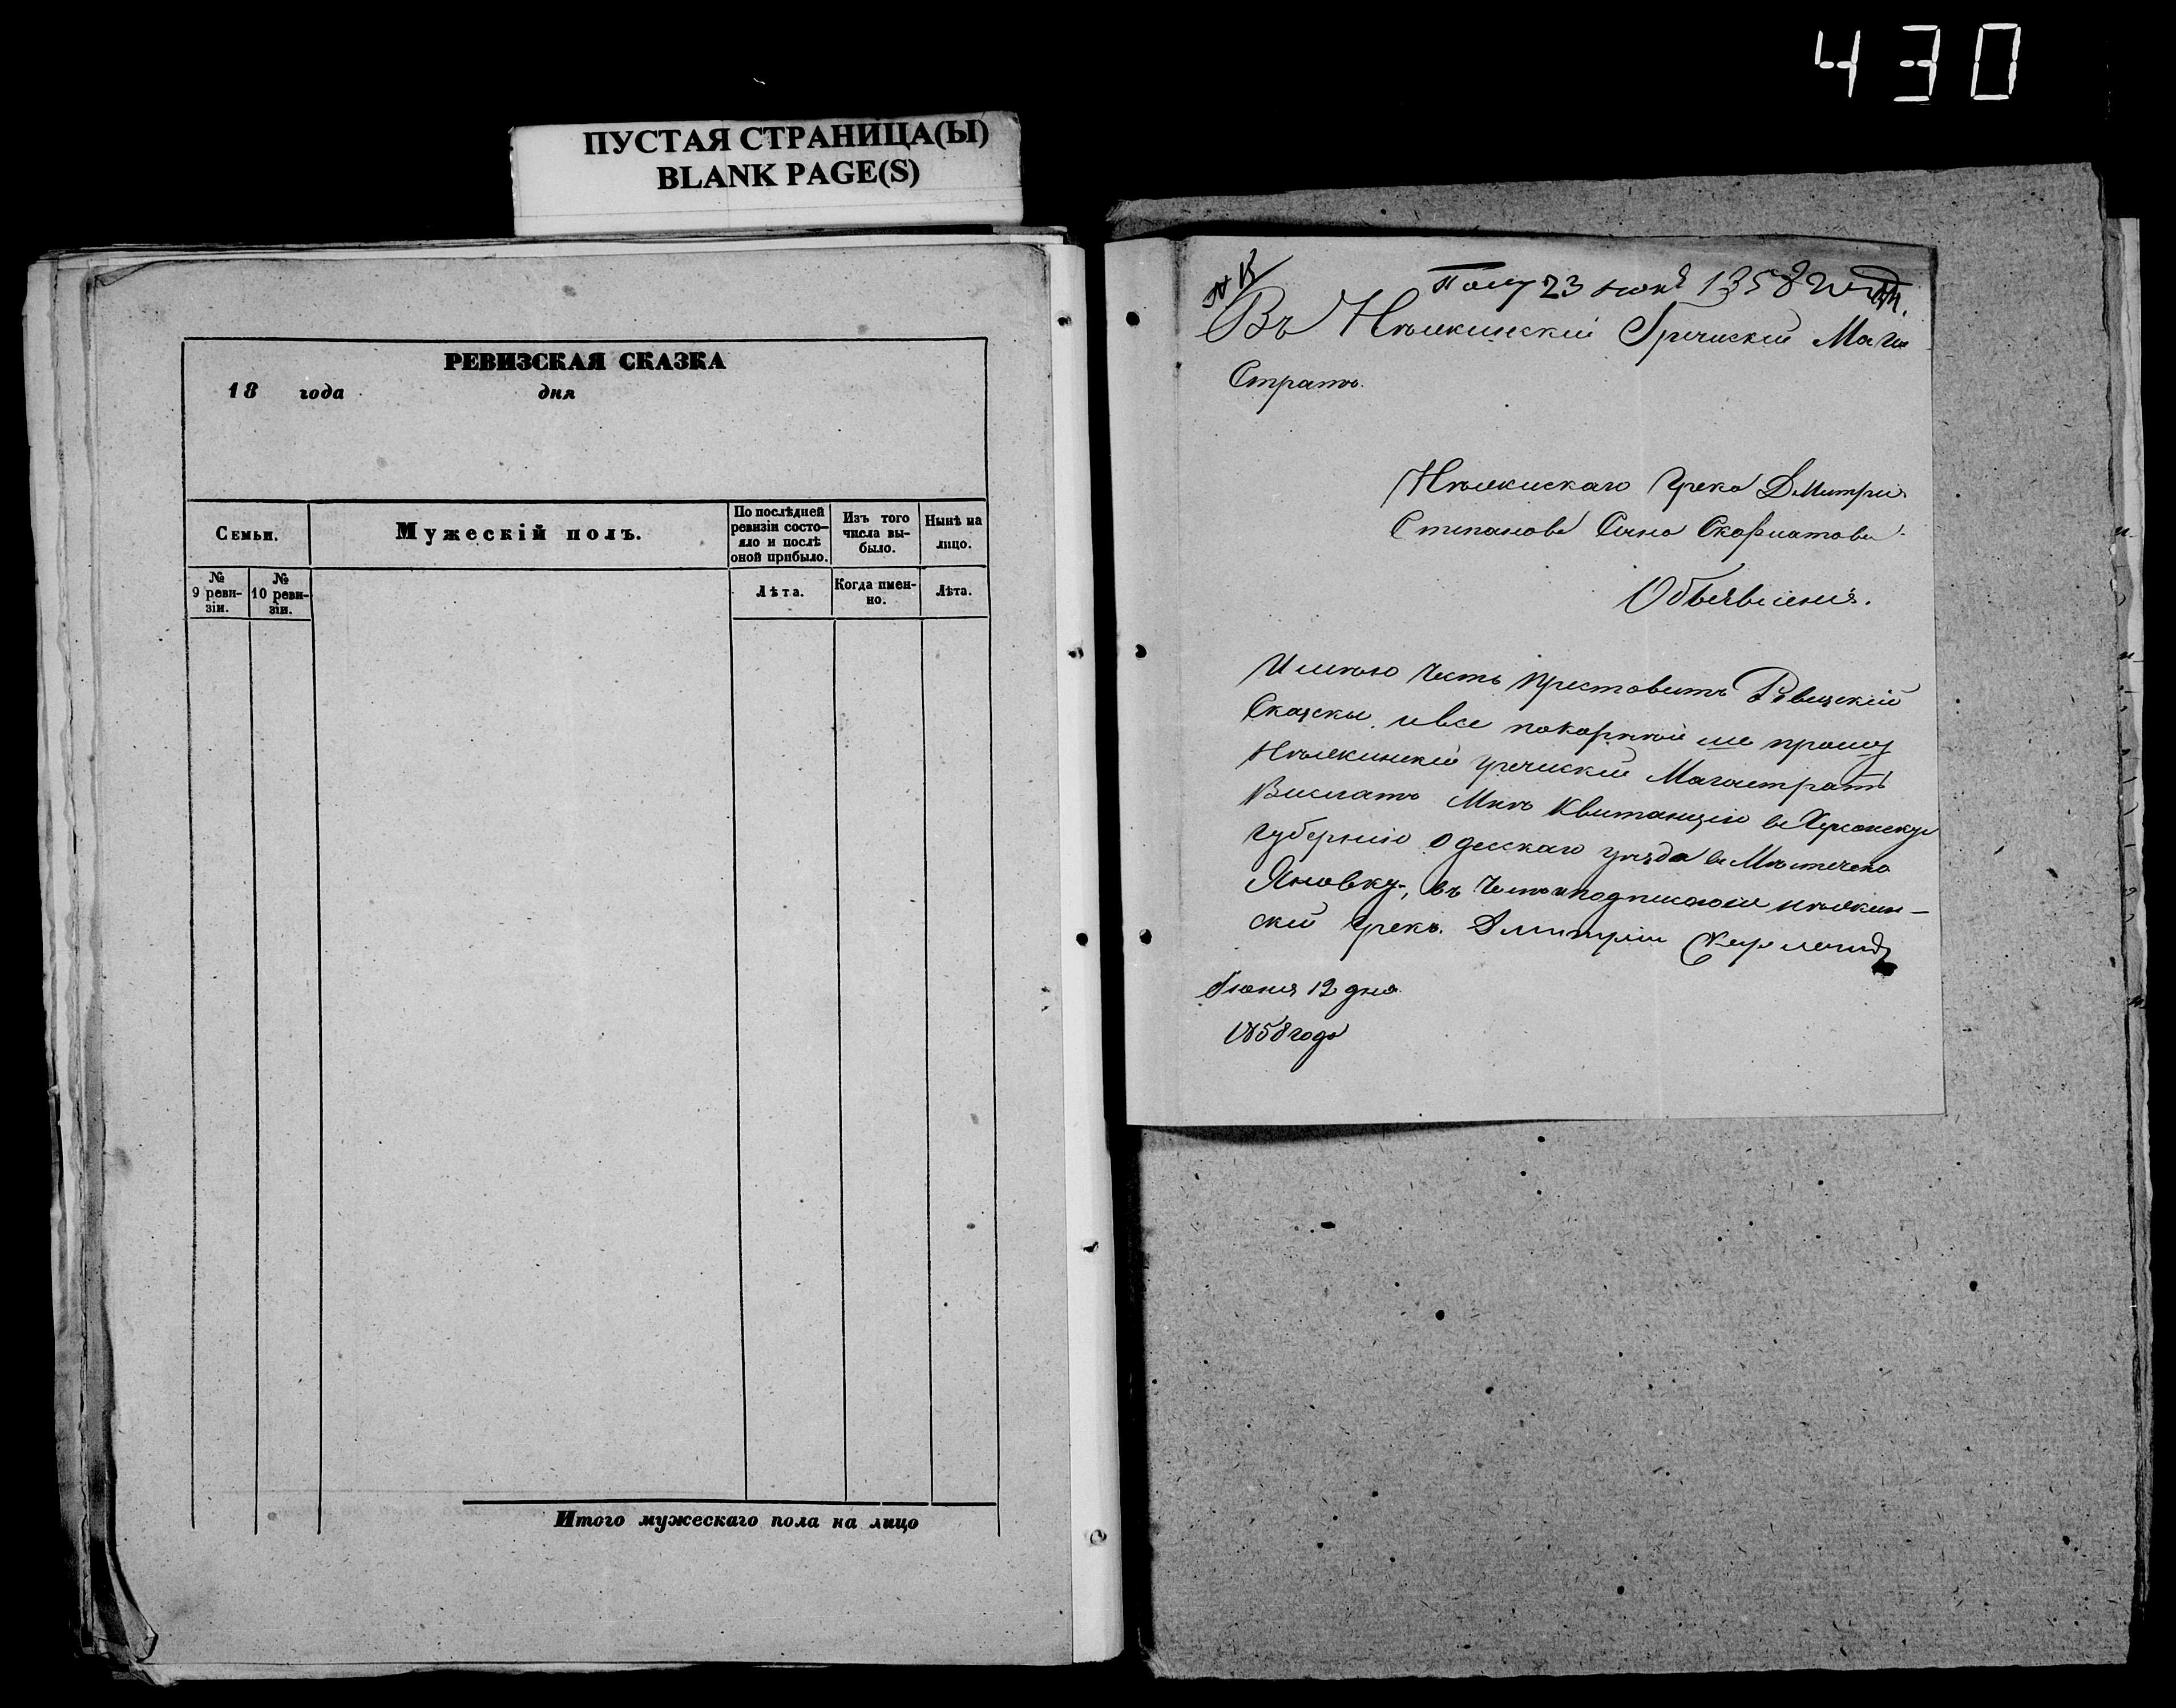 430
ПУСТАЯ СТРАНИЦА(Ы)
BLANK PAGE(S)
РЕВИЗСКАЯ СКАЗКА
18 года дня
Семьи.
Мужескій полъ.
По послѣдней ревизіи состо-
яло и послѣ оной прибыло.
Изъ того числа вы-
было.
Нынѣ на лицо.
№ 9 реви-
зіи.
№ 10 реви-
зіи.
Лѣта.
Когда имен-
но.
Лѣта.
Итого мужескаго пола на лицо
Полу 23 июня 1858
Въ Нѣжинскій Гречискій Маги
Стратъ.
Нѣжискаго Грека Дмитрия
Степанова Сина
Обьявления.
Имѣю Честь Пристовить Ревизский
Сказски и все покорнѣй ше прошу
Нѣжинский гречиский Магастратъ
Вислать Мнѣ Квитанцию в Херсонску
Губернию Одесскаго уѣзда в Мѣстечко
Яновку, въ Чемъ подписаюсь нѣжин-
ский Грекъ. Дмитрий
Июня 12 дня
1858 года